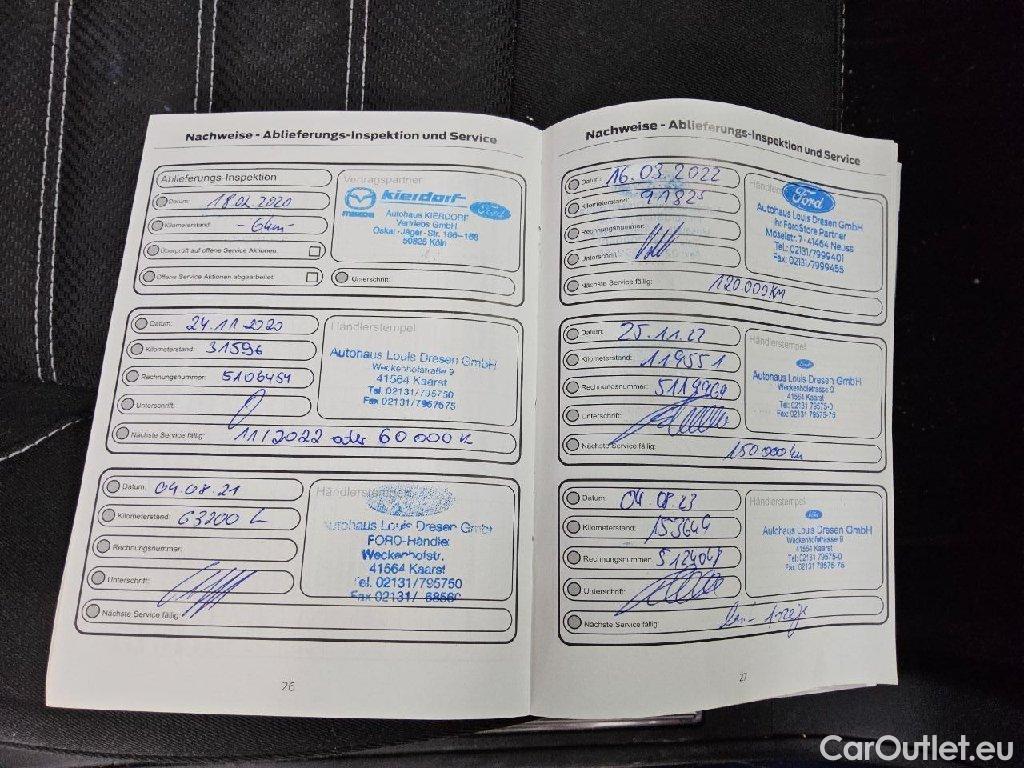 Nachweise - Ablieferungs-Inspektion und Service
Ablieferungs-Inspektion
Datum: 18.02.2020
Kilometerstand: -6km-
Überprüft auf offene Service Aktionen:
Offene Service Aktionen abgearbeitet:
Unterschrift:
Vertragspartner
mazda Kierdorf Ford
Autohaus KIERDORF
Vertriebs GmbH
Oskar-Jäger-Str. 166-168
50825 Köln
Datum: 24.11.2020
Kilometerstand: 31596
Rechnungsnummer: 5106454
Unterschrift:
Nächste Service fällig: 11/2022 oder 60000 K
Händlerstempel
Autohaus Louis Dresen GmbH
Weckenhofstraße 9
41564 Kaarst
Tel. 02131/795750
Fax 02131/7957575
Datum: 04.08.21
Kilometerstand: 63200
Rechnungsnummer:
Unterschrift:
Nächste Service fällig:
Händlerstempel
Autohaus Louis Dresen GmbH
FORD-Händler
Weckenhofstr.
41564 Kaarst
Tel. 02131/795750
Fax 02131/
26
Nachweise - Ablieferungs-Inspektion und Service
Datum: 16.03.2022
Kilometerstand: 91825
Rechnungsnummer:
Unterschrift:
Nächste Service fällig: 120.000KM
Ford
Autohaus Louis Dresen GmbH
Ihr FordStore Partner
Moselstr. 7 · 41464 Neuss
Tel.: 02131/7999401
Fax: 02131/7999455
Datum: 25.11.22
Kilometerstand: 119551
Rechnungsnummer:
Unterschrift:
Nächste Service fällig: 150000km
Händlerstempel
Ford
Autohaus Louis Dresen GmbH
Weckenhofstrasse 9
41564 Kaarst
Tel.: 02131 79575-0
Fax: 02131 79575-75
Datum: 04.08.23
Kilometerstand: 153644
Rechnungsnummer:
Unterschrift:
Nächste Service fällig:
Händlerstempel
Ford
Autohaus Louis Dresen GmbH
Weckenhofstrasse 9
41564 Kaarst
Tel.: 02131 79575-0
Fax: 02131 79575-75
27
CarOutlet.eu